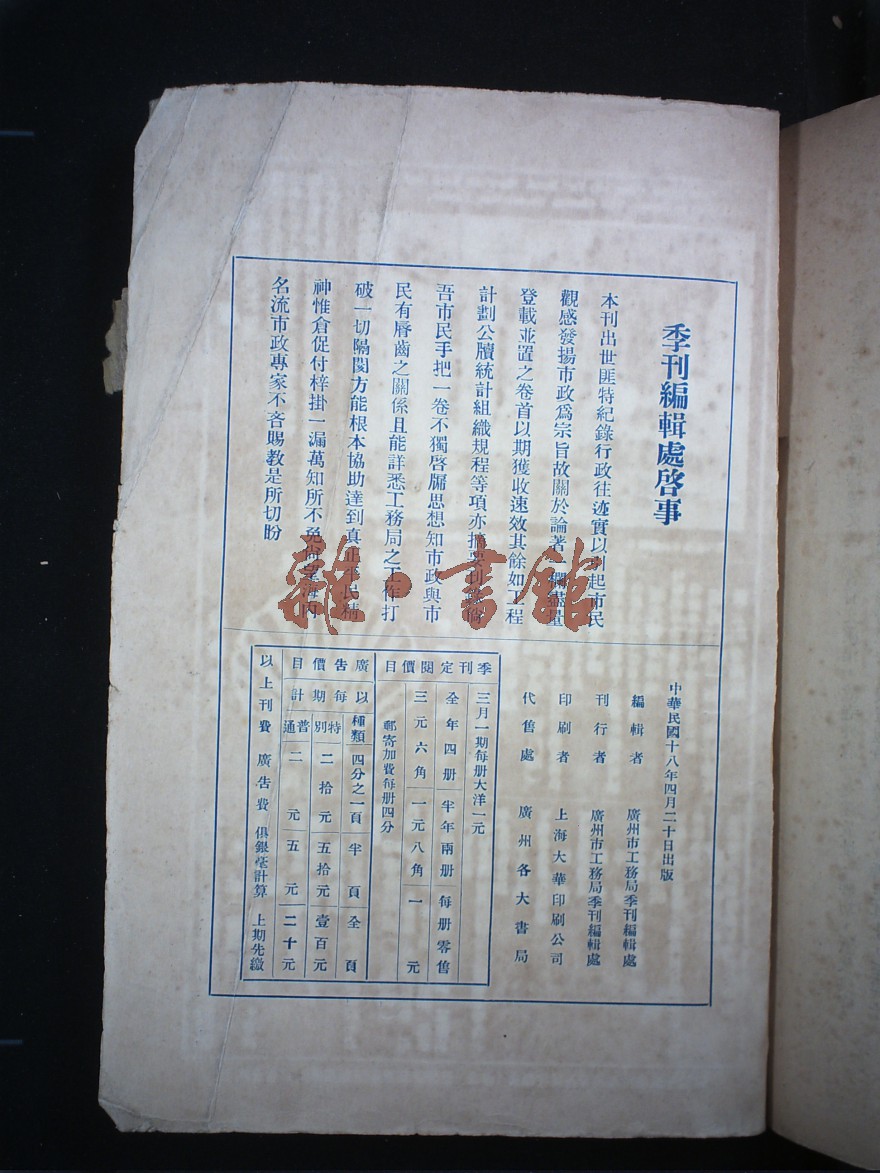 季刊編輯處啓事
本刊出世匪特紀錄行政往迹實以引起市民
觀感發揚市政爲宗旨故關於論著一欄盡量
登載並置之卷首以期獲收速效其餘如工程
計劃公牘統計組織規程等項亦擇要刊
吾市民手把一卷不獨啓牖思想知市政與市
民有唇齒之關係且能詳悉工務局之工作打
破一切隔閡方能根本協助達到真正民
神惟倉促付梓掛一漏萬知所不免尚望海內
名流市政專家不吝賜教是所切盼
中華民國十八年四月二十日出版
編輯者 廣州市工務局季刊編輯處
刊行者 廣州市工務局季刊編輯處
印刷者 上海大華印刷公司
代售處 廣州各大書局
季刊定閱價目
三月一期每册大洋一元
全年四册 半年兩册 每册零售
三元六角 一元八角 一元
郵寄加費每册四分
廣告價目
以每期計
種類 四分之一頁 半頁 全頁
特別 二拾元 五拾元 壹百元
普通 二元 五元 二十元
以上刊費廣告費俱銀毫計算上期先繳
雜·書館